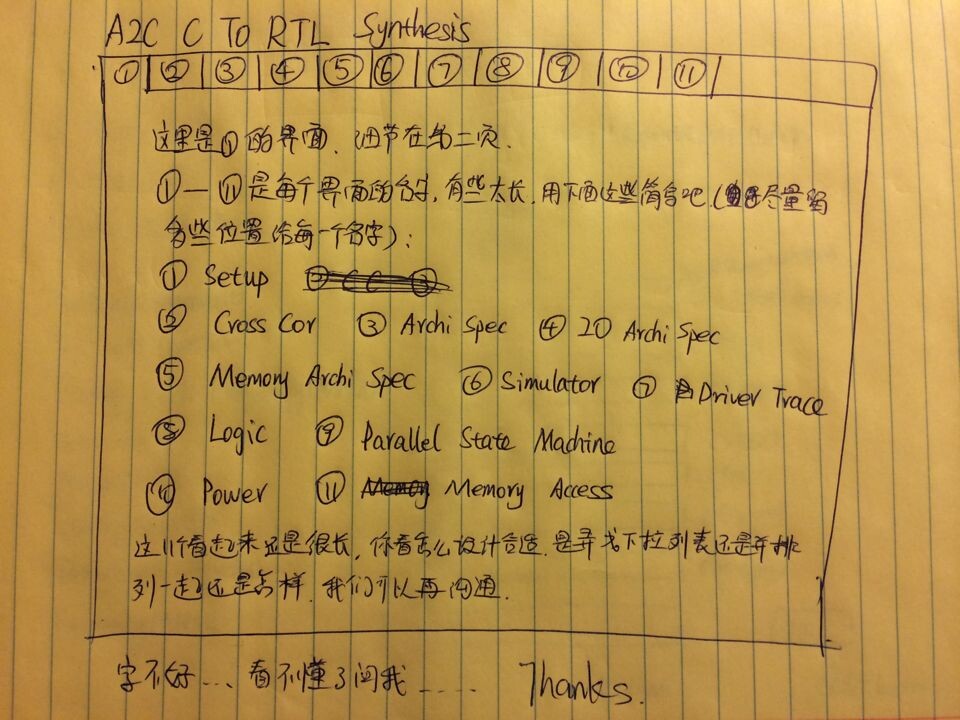 A2C C To RTL Synthesis
① ② ③ ④ ⑤ ⑥ ⑦ ⑧ ⑨ ⑩ ⑪
这里是①的界面、细节在第二页.
①—⑪是每个界面的名字,有些太长,用下面这些简名吧.(尽量留
多些位置给每一个名字):
① Setup
② Cross Cor ③ Archi Spec ④ 2D Archi Spec
⑤ Memory Archi Spec ⑥ Simulator ⑦ Driver Trace
⑧ Logic ⑨ Parallel State Machine
⑩ Power ⑪ Memory Access
这11个看起来还是很长,你看怎么设计合适.是弄成下拉列表还是并排
列一起还是怎样.我们可以再沟通.
字不好... 看不懂了问我..... Thanks.